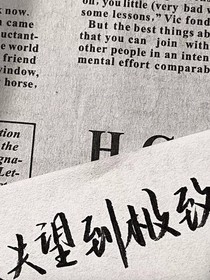 k now.
n came
uctant-
e world
friend
window,
horse.
on, you little (very bad
some lessons." Vic fond
But the best things ab
that you can join with
other people in an inten
mental effort comparab
ition
the
gna-
Let-
H C
失望到极致